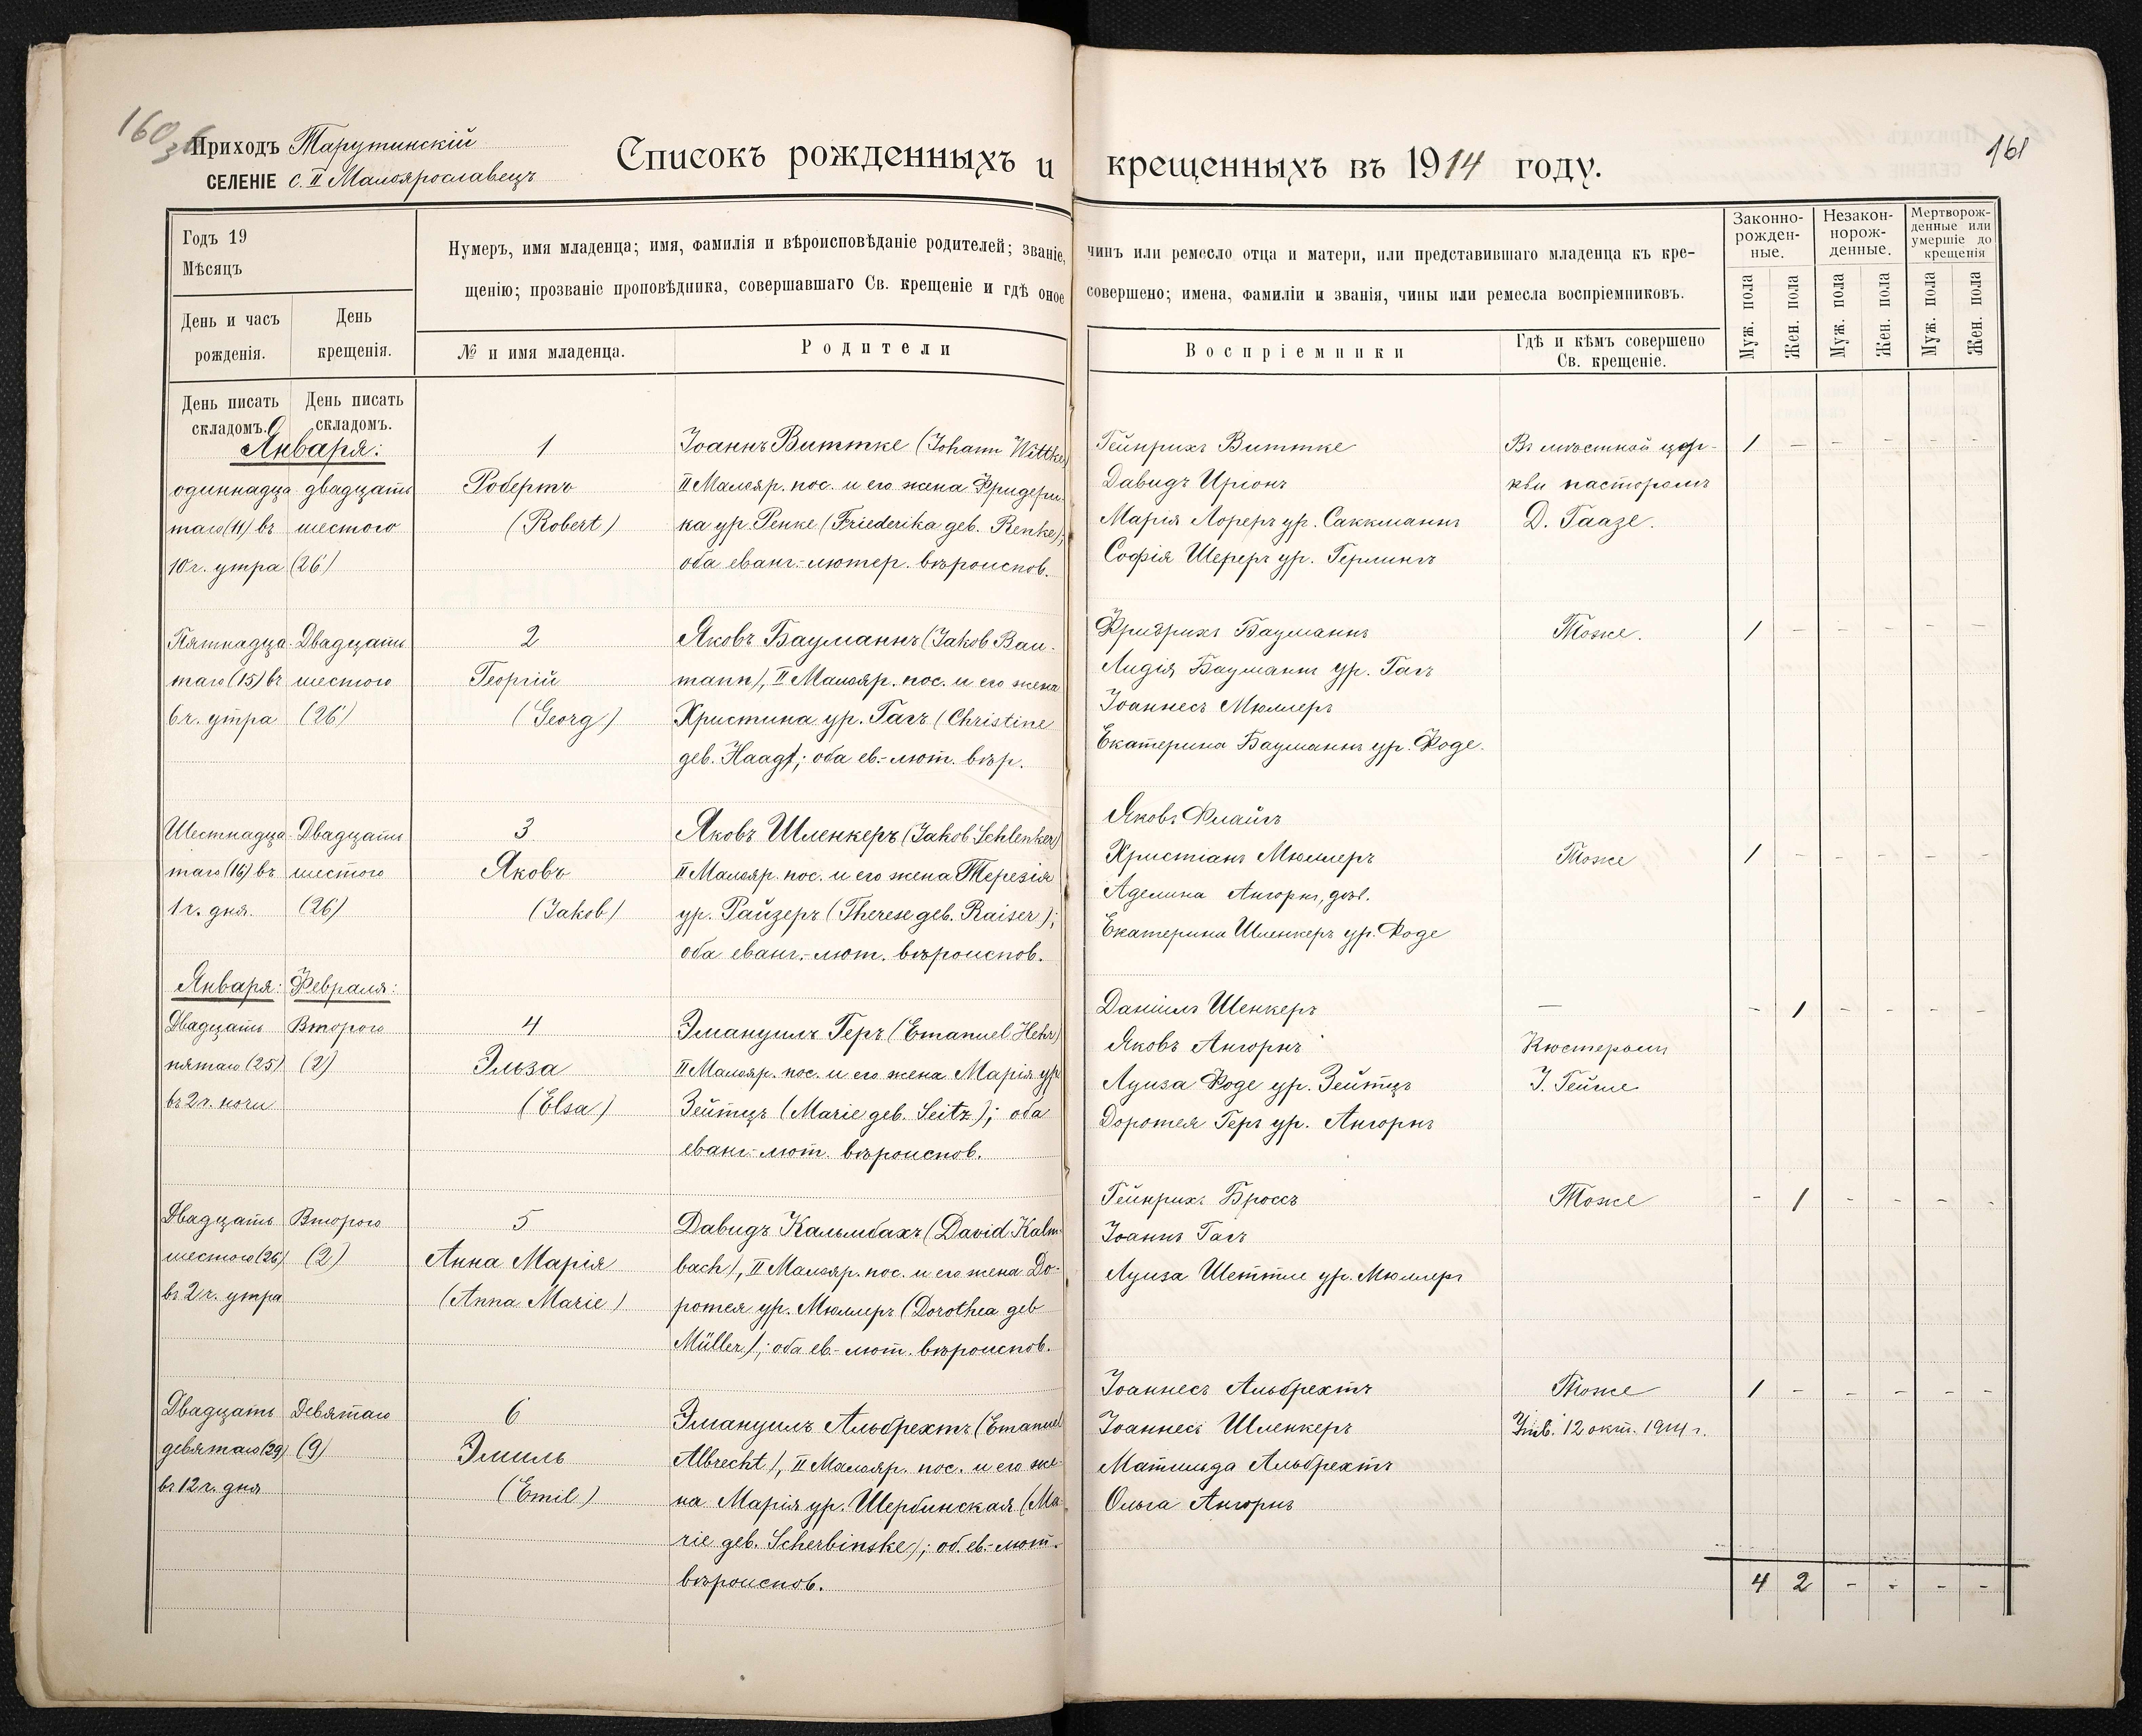 160
161
Приходъ Тарутинскій
СЕЛЕНІЕ с. II Малоярославецъ
Списокъ рожденныхъ и крещенныхъ въ 1914 году.
Годъ 19
Мѣсяцъ
День и часъ рожденія.
День крещенія.
Нумеръ, имя младенца; имя, фамилія и вѣроисповѣданіе родителей; званіе, чинъ или ремесло отца и матери, или представившаго младенца къ кре-
щенію; прозваніе проповѣдника, совершавшаго Св. крещеніе и гдѣ оное совершено; имена, фамиліи и званія, чины или ремесла воспріемниковъ.
№ и имя младенца.
Родители
Воспріемники
Гдѣ и кѣмъ совершено
Св. крещеніе.
Законно-
рожден-
ные.
Незакон-
норож-
денные.
Мертворож-
денные или
умершіе до
крещенія
Муж. пола
Жен. пола
Муж. пола
Жен. пола
Муж. пола
Жен. пола
День писать
складомъ.
День писать
складомъ.
Января:
одиннадца-
таго (11) въ
10 ч. утра
двадцать
шестого
(26)
1
Робертъ
(Robert)
Іоаннъ Виттке (Johann Wittke)
II Малояр. пос. и его жена Фридери-
ка ур. Ренке (Friederika geb. Renke);
оба еванг.-лютер. вѣроиспов.
Гейнрихъ Виттке
Давидъ Иріонъ
Марія Лореръ ур. Саккманнъ
Софія Шереръ ур. Герлингъ
Въ мѣстной цер-
кви пасторомъ
Д. Гаазе.
1 - - - - -
Пятнадца-
таго (15) въ
6 ч. утра
Двадцать
шестого
(26)
2
Георгій
(Georg)
Яковъ Бауманнъ (Jakob Bau-
mann), II Малояр. пос. и его жена
Христина ур. Гагъ (Christine
geb. Haag); оба ев.-лют. вѣр.
Фридрихъ Бауманнъ
Лидія Бауманнъ ур. Гагъ
Іоаннесъ Мюллеръ
Екатерина Бауманнъ ур. Фоде.
Тоже.
1 - - - - -
Шестнадца-
таго (16) въ
1 ч. дня.
Двадцать
шестого
(26)
3
Яковъ
(Jakob)
Яковъ Шленкеръ (Jakob Schlenker)
II Малояр. пос. и его жена Терезія
ур. Райзеръ (Therese geb. Raiser);
оба еванг.-лют. вѣроиспов.
Яковъ Флайгъ
Христіанъ Мюллеръ
Аделина Ангорнъ,
Екатерина Шленкеръ ур. Фоде
Тоже
1 - - - - -
Января:
Двадцать
пятаго (25)
въ 2 ч. ночи
Февраля:
Второго
(2)
4
Эльза
(Elsa)
Эмануилъ Геръ (Emanuel Hehr)
II Малояр. пос. и его жена Марія ур.
Зейтцъ (Marie geb. Seitz); оба
еванг.-лют. вѣроиспов.
Даніилъ Шенкеръ
Яковъ Ангорнъ
Луиза Фоде ур. Зейтцъ
Доротея Геръ ур. Ангорнъ
—
Кюстеромъ
І. Гейне
- 1 - - - -
Двадцать
шестого (26)
въ 2 ч. утра
Второго
(2)
5
Анна Марія
(Anna Marie)
Давидъ Кальмбахъ (David Kalm-
bach), II Малояр. пос. и его жена До-
ротея ур. Мюллеръ (Dorothea geb
Müller); оба ев.-лют. вѣроиспов.
Гейнрихъ Броссъ
Іоаннъ Гагъ
Луиза Шеттле ур. Мюллеръ
Тоже
- 1 - - - -
Двадцать
девятаго (29)
въ 12 ч. дня
Девятаго
(9)
6
Эмиль
(Emil)
Эмануилъ Альбрехтъ (Emanuel
Albrecht), II Малояр. пос. и его же-
на Марія ур. Щербинская (Ma-
rie geb. Scherbinske); об. ев.-лют.
вѣроиспов.
Іоаннесъ Альбрехтъ
Іоаннесъ Шленкеръ
Матильда Альбрехтъ
Ольга Ангорнъ
Тоже
12 окт. 1914 г.
1 - - - - -
4 2 - - - -